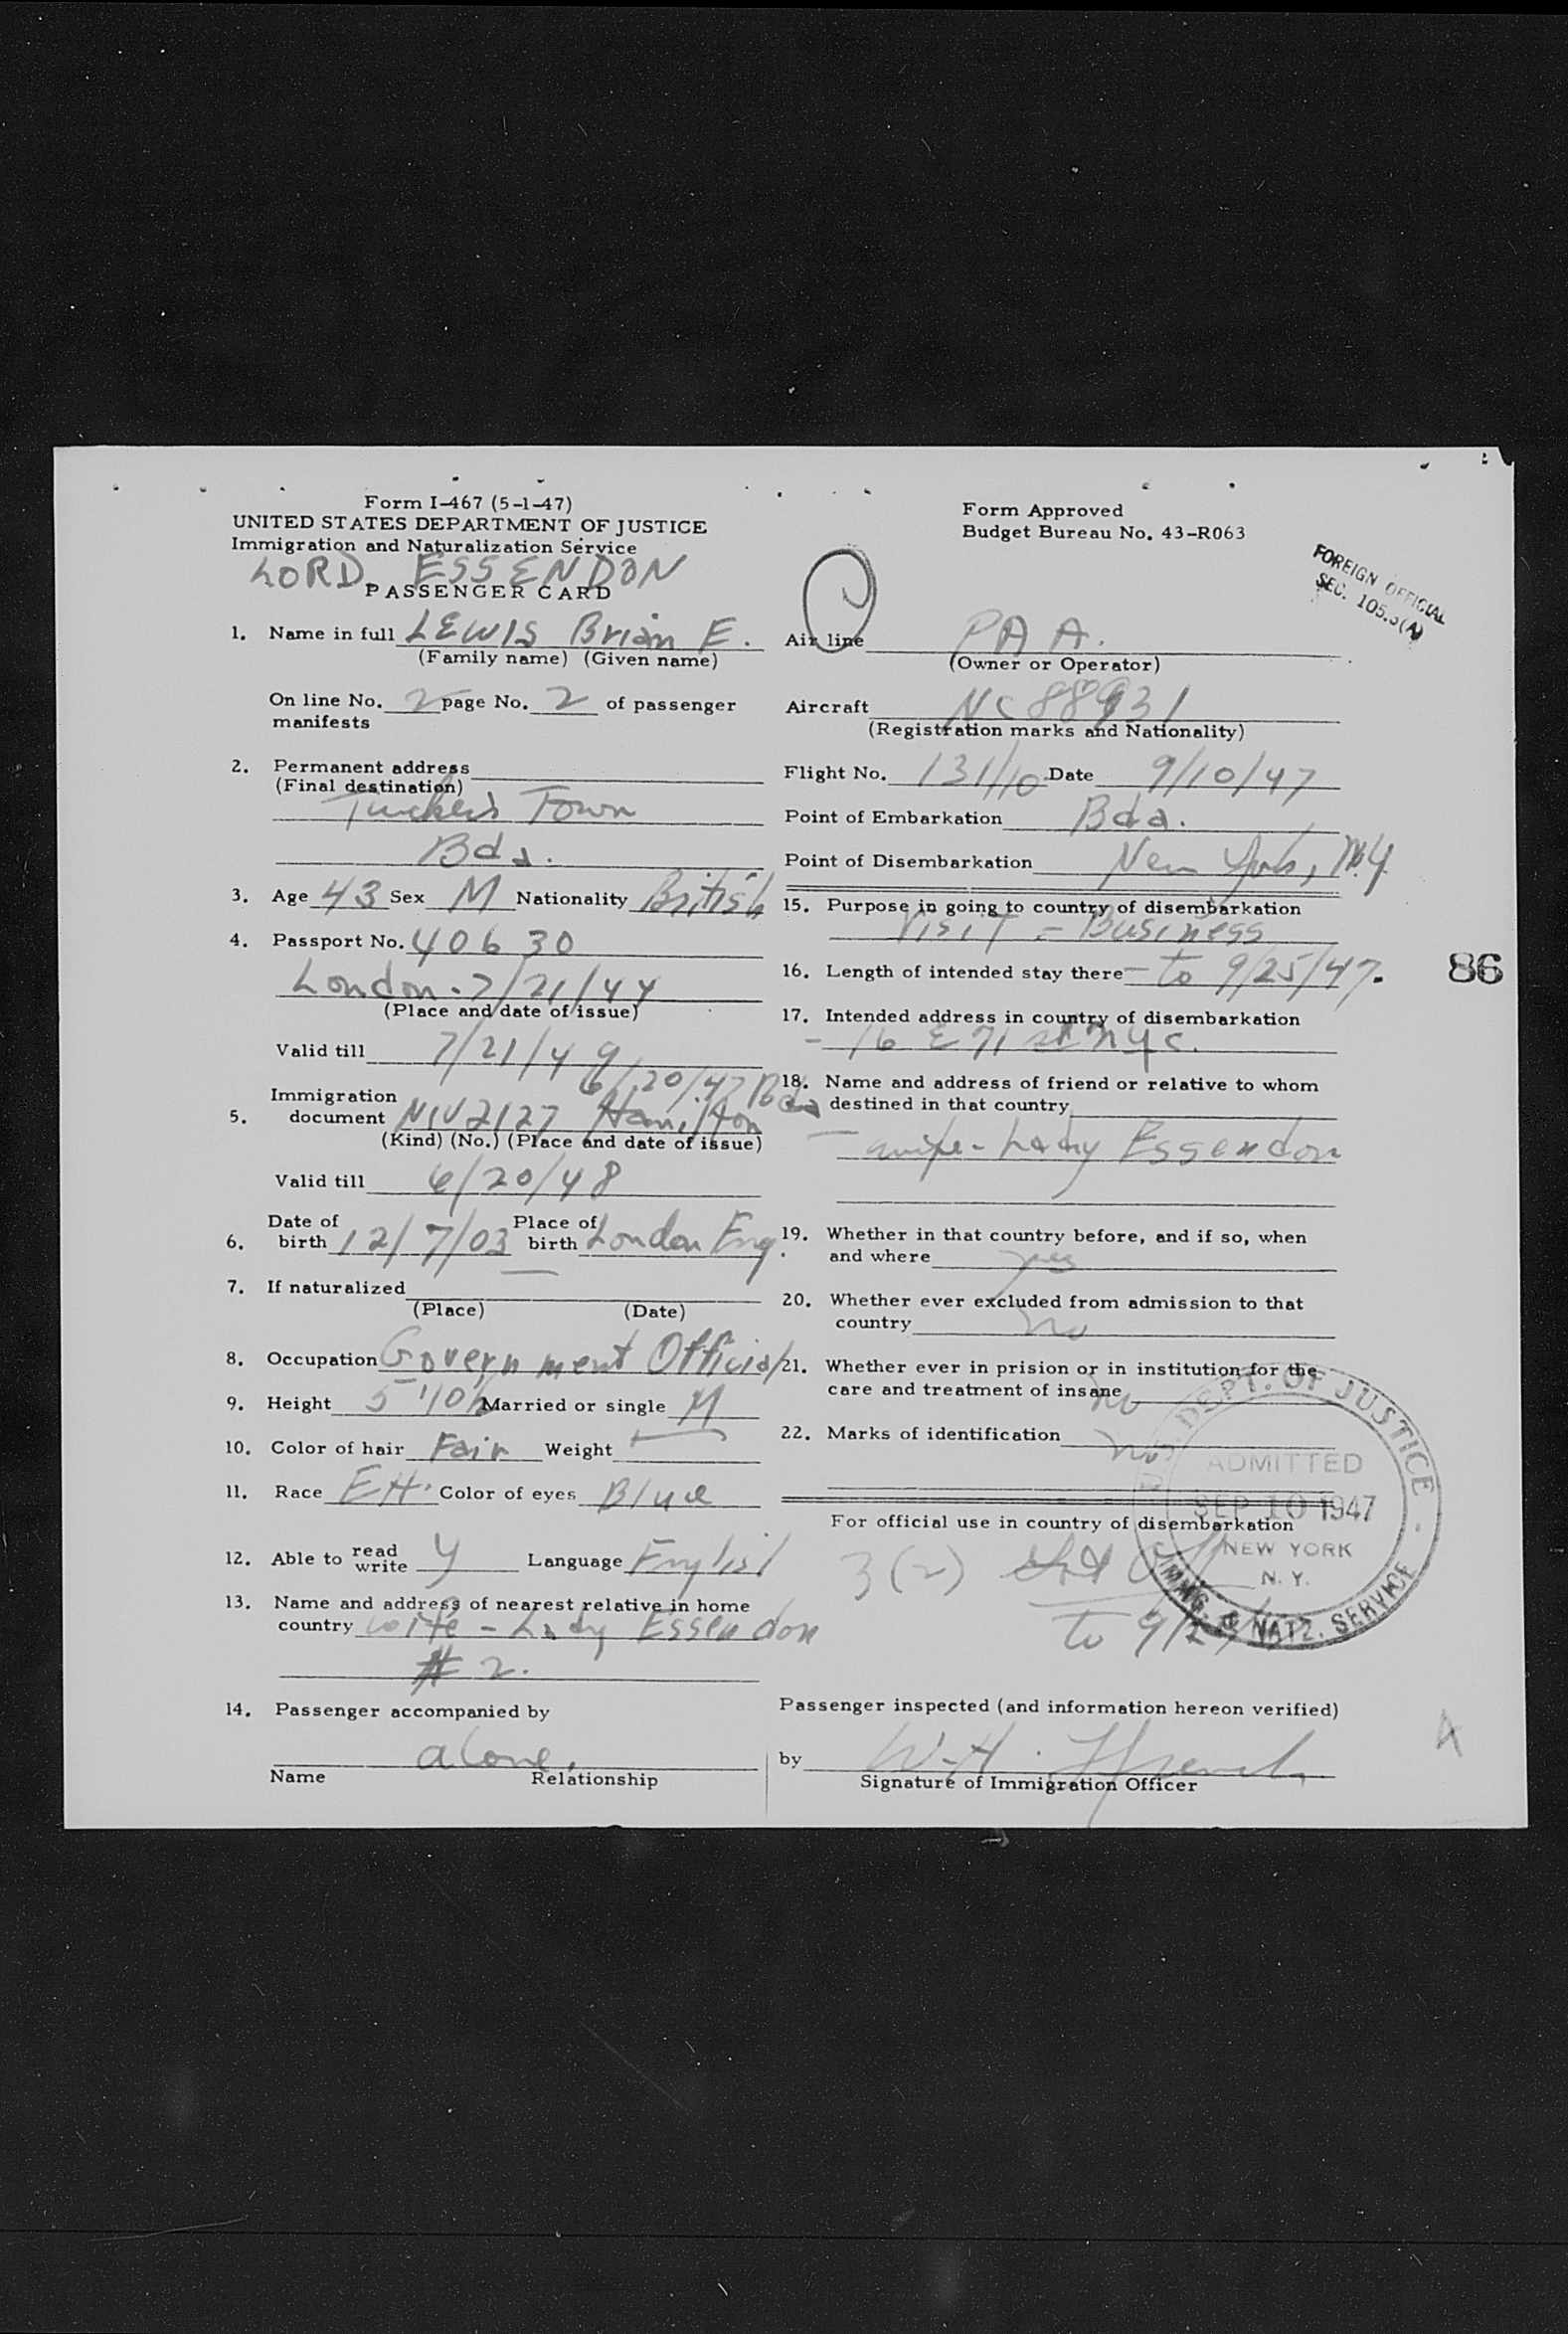 Form I-467 (5-1-47)
UNITED STATES DEPARTMENT OF JUSTICE
Immigration and Naturalization Service
LORD ESSENDON
PASSENGER CARD
1. Name in full LEWIS Brian E.
(Family name) (Given name)
On line No. 2 page No. 2 of passenger
manifests
2. Permanent address
(Final destination)
Tuckers Town
Bda.
3. Age 43 Sex M Nationality British
4. Passport No. 40630
London - 7/21/44
(Place and date of issue)
Valid till 7/21/49
6/20/47 Bda
Immigration
5. document NIV 2127 Hamilton
(Kind) (No.) (Place and date of issue)
Valid till 6/20/48
6. Date of birth 12/7/03 Place of birth London Eng.
7. If naturalized —
(Place) (Date)
8. Occupation Government Official
9. Height 5'10½ Married or single M
10. Color of hair Fair Weight —
11. Race EH. Color of eyes Blue
12. Able to read write Y Language English
13. Name and address of nearest relative in home
country wife - Lady Essendon
# 2.
14. Passenger accompanied by
alone.
Name Relationship
Form Approved
Budget Bureau No. 43-R063
FOREIGN OFFICIAL
SEC. 105.3(A)
Air line PAA.
(Owner or Operator)
Aircraft NC 88931
(Registration marks and Nationality)
Flight No. 131/10 Date 9/10/47
Point of Embarkation Bda.
Point of Disembarkation New York, N.Y.
15. Purpose in going to country of disembarkation
Visit - Business
16. Length of intended stay there - to 9/25/47.
86
17. Intended address in country of disembarkation
- 16 E 71 st NYC.
18. Name and address of friend or relative to whom
destined in that country
- wife - Lady Essendon
19. Whether in that country before, and if so, when
and where yes
20. Whether ever excluded from admission to that
country no
21. Whether ever in prision or in institution for the
care and treatment of insane no
22. Marks of identification no
DEPT. OF JUSTICE
ADMITTED
SEP 10 1947
NEW YORK
N. Y.
IMMIG. & NATZ. SERVICE
For official use in country of disembarkation
3(2)
to 9/
Passenger inspected (and information hereon verified)
by W. H. French
Signature of Immigration Officer